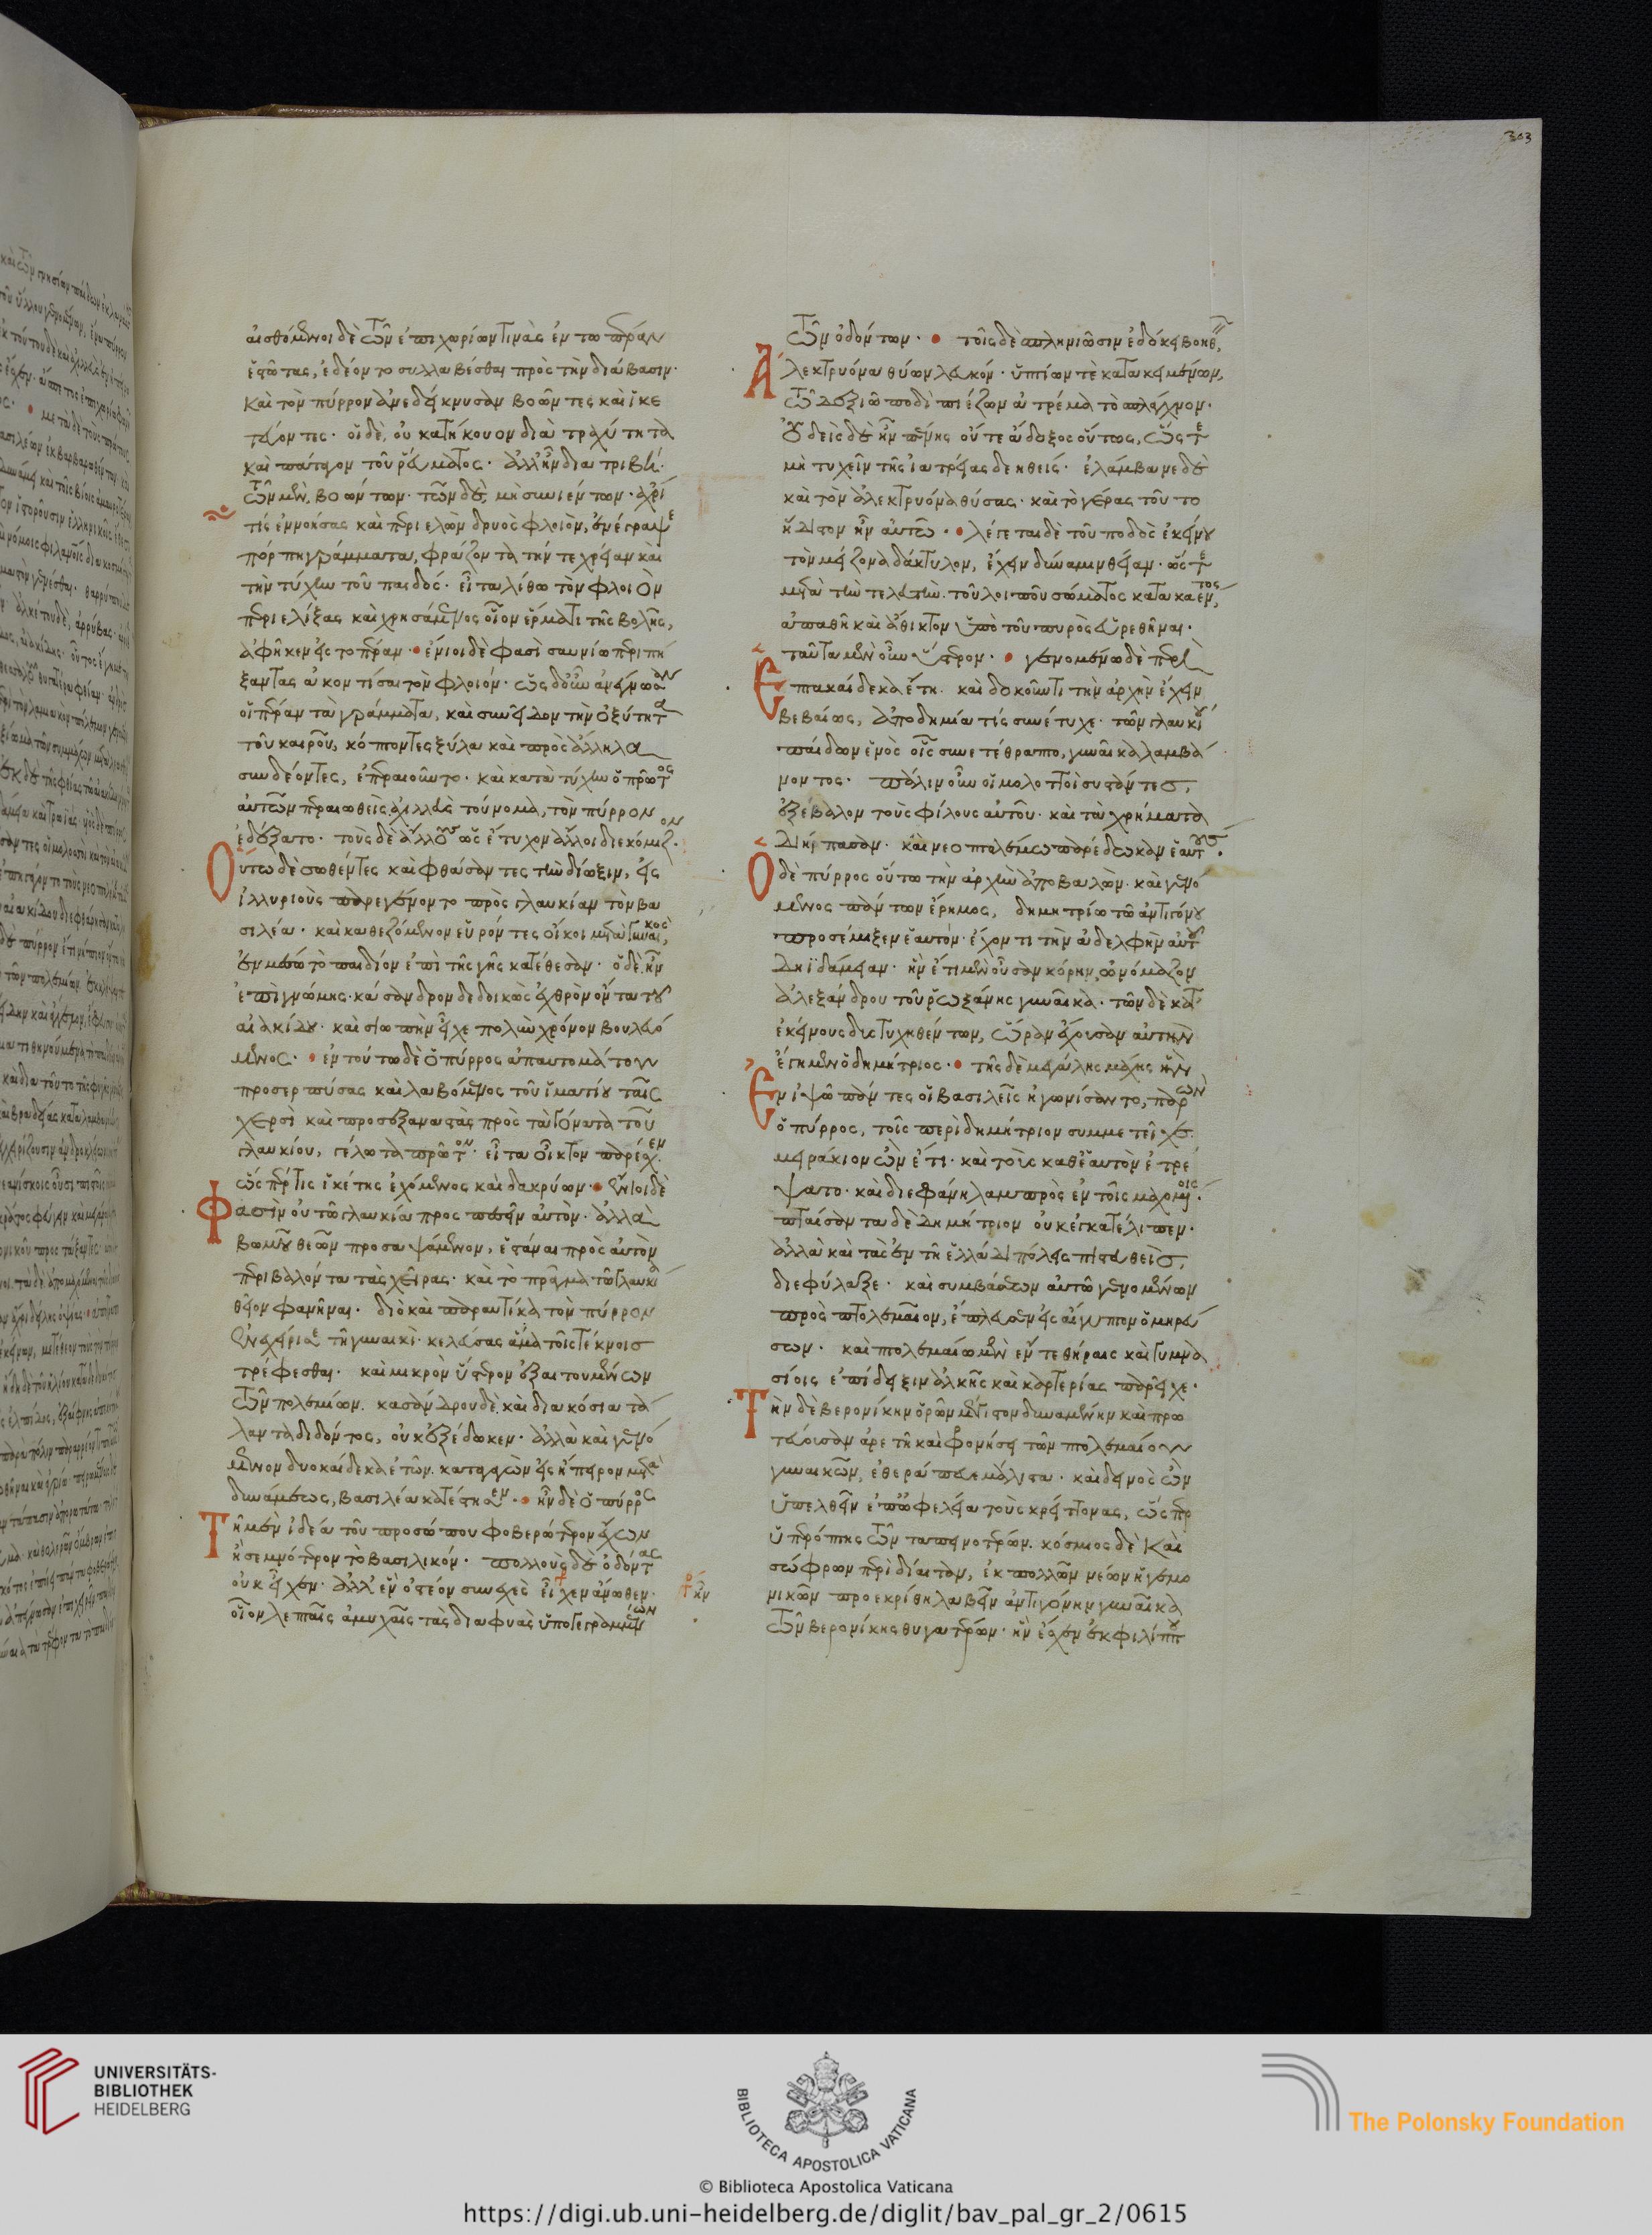 αἰσθόμενοι δὲ τῶν ἐπιχωρίων τινὰς ἐν τω πέραν
ἑστῶτας, ἐδέοντο συλλαβέσθαι πρὸς τὴν διάβασιν·
καὶ τὸν πύρρον ἀνεδείκνυσαν βοῶντες καὶ ἱκε
τεύοντες· οἱ δὲ, οὐ κατήκουον διὰ τραχύτητα
καὶ πάταγον τοῦ ῥεύματος· ἀλλ' ἦν διατριβὴ·
τῶν μὲν, βοώντων· τῶν δὲ, μὴ συνιέντων· ἄχρί
τίς ἐννοήσας καὶ περιελὼν δρυὸς φλοιὸν, ἐνέγραψε
πόρπη γράμματα, φράζοντα τήν τε χρείαν καὶ
τὴν τύχην τοῦ παιδός· εἶτα λίθω τὸν φλοιὸν
περιελίξας καὶ χρησάμενος οἷον ἕρματι τῆς βολῆς,
ἀφῆκεν εἰς το πέραν· ἔνιοι δὲ φασὶ σαυνίω περιπή
ξαντας ἀκοντίσαι τὸν φλοιόν· ὡς δ' οὖν ἀνέγνωσαν
οἱ πέραν τὰ γράμματα, καὶ συνεῖδον τὴν ὀξύτητα
τοῦ καιροῦ, κόπτοντες ξύλα καὶ πρὸς ἄλληλα
συνδέοντες, ἐπεραιοῦντο· καὶ κατὰ τύχην ὁ πρῶτος
αὐτῶν περαιωθεὶς ἀχιλλεὺς τοὔνομα, τὸν πύρρον
ἐδέξατο· τοὺς δὲ ἄλλους ὡς ἔτυχον ἄλλοι διεκόμιζον·
Οὕτω δὲ σωθέντες καὶ φθάσαντες τὴν δίωξιν, εἰς
ἰλλυριοὺς παρεγένοντο πρὸς γλαυκίαν τὸν βα
σιλέα· καὶ καθεζόμενον εὑρόντες οἴκοι μετὰ γυναικὸς,
ἐν μέσω τὸ παιδίον ἐπὶ τῆς γῆς κατέθεσαν· ὁ δὲ ἦν
ἐπὶ γνώμης· κάσανδρον δεδοικὼς ἐχθρὸν ὄντα τοῦ
αἰακίδου· καὶ σιωπὴν εἶχε πολὺν χρόνον βουλευό
μενος· ἐν τούτω δὲ ὁ πύρρος ἀπαυτομάτου
προσερπύσας καὶ λαβόμενος τοῦ ἱματίου ταῖς
χερσὶ καὶ προσεξαναστὰς πρὸς τὰ γόνατα τοῦ
γλαυκίου, γέλωτα πρῶτον· εἶτα οἶκτον παρέσχεν
ὥσπερ τις ἱκέτης ἐχόμενος καὶ δακρύων· ἔνιοι δὲ
Φασὶν οὐ τῶ γλαυκία προσπεσεῖν αὐτὸν· ἀλλὰ
βωμοῦ θεῶν προσαψάμενον, ἑστάναι πρὸς αὐτὸν
περιβαλόντα τὰς χεῖρας· καὶ τὸ πρᾶγμα τῶ γλαυκία
θεῖον φανῆναι· διὸ καὶ παραυτίκα τὸν πύρρον
ἐνεχείρισε τῆ γυναικὶ· κελεύσας ἅμα τοῖς τέκνοις
τρέφεσθαι· καὶ μικρὸν ὕστερον ἐξαιτουμένων
τῶν πολεμίων· κασάνδρου δὲ καὶ διακόσια τά
λαντα διδόντος, οὐκ ἐξέδωκεν· ἀλλὰ καὶ γενό
μενον δυοκαίδεκα ἐτῶν· καταγαγὼν εἰς ἤπειρον μετὰ
δυνάμεως, βασιλέα κατέστησεν· ἦν δὲ ὁ πύρρος
Τῆ μὲν ἰδέα τοῦ προσώπου φοβερώτερον ἔχων
ἢ σεμνότερον τὸ βασιλικόν· πολλοὺς δὲ ὀδόντας
οὐκ εἶχεν· ἀλλ' ἓν ὀστέον συνεχὲς εἶχεν ἄνωθεν·
οἷον λεπταῖς ἀμυχαῖς τὰς διαφυὰς ὑπογεγραμμένων
ἦν
303
τῶν ὀδόντων· τοῖς δὲ σπληνιῶσιν ἐδόκει βοηθεῖν,
Ἀλεκτρυόνα θύων λευκόν· ὑπτίων τὲ κατακειμένων,
τῶ δεξιῶ ποδὶ πιέζων ἀτρέμα τὸ σπλάγχνον·
Οὐδεὶς δὲ ἦν πένης οὔτε ἄδοξος οὕτως, ὥστε
μὴ τυχεῖν τῆς ἰατρείας δεηθείς· ἐλάμβανε δὲ
καὶ τὸν ἀλεκτρυόνα θύσας· καὶ τὸ γέρας τοῦτο
ἥδιστον ἦν αὐτῶ· λέγεται δὲ τοῦ ποδὸς ἐκείνου
τὸν μείζονα δάκτυλον, ἔχειν δύναμιν θείαν· ὥστε
μετὰ τὴν τελευτὴν· τοῦ λοιποῦ σώματος κατακαέντος,
ἀπαθῆ καὶ ἄθικτον ὑπὸ τοῦ πυρὸς εὑρεθῆναι·
ταῦτα μὲν οὖν ὕστερον· γενομένω δὲ περὶ
Ἑπτακαίδεκα ἔτη· καὶ δοκοῦντι τὴν ἀρχὴν ἔχειν
βεβαίως, ἀποδημία τίς συνέτυχε· τῶν γλαυκίου
παίδων ἑνὸς οἷς συνετέθραπτο, γυναῖκα λαμβά
νοντος· πάλιν οὖν οἱ μολοττοὶ συστάντες,
ἐξέβαλον τοὺς φίλους αὐτοῦ· καὶ τὰ χρήματα
διήρπασαν· καὶ νεοπτολέμω παρέδωκαν ἑαυτούς·
Ὁ δὲ πύρρος οὕτω τὴν ἀρχὴν ἀποβαλὼν· καὶ γενό
μενος πάντων ἔρημος, δημητρίω τῶ ἀντιγόνου
προσέμιξεν ἑαυτὸν· ἔχοντι τὴν ἀδελφὴν αὐτοῦ
δηϊδάμειαν· ἣν ἔτι μὲν οὖσαν κόρην, ὠνόμαζον
ἀλεξάνδρου τοῦ ῥωξάνης γυναῖκα· τῶν δὲ κατ'
ἐκείνους δυστυχηθέντων, ὥραν ἔχουσαν αὐτὴν
ἔγημεν ὁ δημήτριος· τῆς δὲ μεγάλης μάχης ἣν
Ἐν ἰψῶ πάντες οἱ βασιλεῖς ἠγωνίσαντο, παρὼν
ὁ πύρρος, τοῖς περὶ δημήτριον συμμετεῖχε·
μειράκιον ὢν ἔτι· καὶ τοὺς καθ' ἑαυτὸν ἐτρέ
ψατο· καὶ διεφάνη λαμπρὸς ἐν τοῖς μαχομένοις·
πταίσαντα δὲ δημήτριον οὐκ ἐγκατέλιπεν·
ἀλλὰ καὶ τὰς ἐν τῆ ἑλλάδι πόλεις πιστευθεὶς,
διεφύλαξε· καὶ συμβάσεων αὐτῶ γενομένων
πρὸς πτολεμαῖον, ἔπλευσεν εἰς αἴγυπτον ὁμηρεύ
σων· καὶ πτολεμαίω μὲν ἔν τε θήραις καὶ γυμνα
σίοις ἐπίδειξιν ἀλκῆς καὶ καρτερίας παρεῖχε·
Τὴν δὲ βερονίκην ὁρῶν μέγιστον δυναμένην καὶ πρω
τεύουσαν ἀρετῆ καὶ φρονήσει τῶν πτολεμαίου
γυναικῶν, ἐθεράπευε μάλιστα· καὶ δεινὸς ὢν
ὑπελθεῖν ἐπ' ὠφελεία τοὺς κρείττονας, ὥσπερ
ὑπερόπτης τῶν ταπεινοτέρων· κόσμιος δὲ καὶ
σώφρων περὶ δίαιταν, ἐκ πολλῶν νέων ἡγεμο
νικῶν προεκρίθη λαβεῖν ἀντιγόνην γυναῖκα
τῶν βερονίκης θυγατέρων· ἣν ἔσχεν ἐκ φιλίππου
UNIVERSITÄTS-
BIBLIOTHEK
HEIDELBERG
BIBLIOTECA APOSTOLICA VATICANA
The Polonsky Foundation
© Biblioteca Apostolica Vaticana
https://digi.ub.uni-heidelberg.de/diglit/bav_pal_gr_2/0615